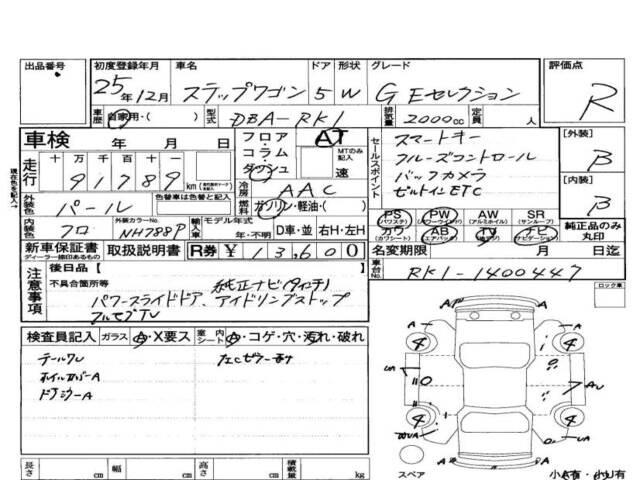 出品番号 初度登録年月 車名 ドア 形状 グレード 評価点
25年12月 ステップワゴン 5 W G Eセレクション R
車歴 自家用・( ) 型式 DBA-RK1 排気量 2000cc 定員 人
車検 年 月 日 フロア・コラム・ダッシュ AT MTのみ記入 速
セールスポイント
スマートキー
クルーズコントロール
バックカメラ
ビルトインETC
[外装] B
[内装] B
現在色を記入→
走行 十 万 千 百 十 一
91789 km
冷房 AAC
外装色 パール 色替車は色替と記入
燃料 ガソリン・軽油・( )
内装色 クロ 外装カラーNo. NH788P 輸入車 モデル年式 年・不明 D車・並 右H・左H
PS (パワステ) PW (パワーウインド) AW (アルミホイル) SR (サンルーフ)
カワ (カワシート) AB (エアバック) TV ナビ (ナビゲーション)
純正品のみ丸印
新車保証書 取扱説明書 R券 ¥ 13,600
ディーラー捺印あるもの
名変期限 月 日迄
車台No. RK1-1400447
注意事項
後日品 [ ]
不具合箇所等
純正ナビ
パワースライドドア、アイドリングストップ
フルセグTV
ロック車
検査員記入 ガラス A・X要ス 室内シート A・コゲ・穴・汚れ・破れ
テールワレ
ドアミラーA
A A A
4 4
4 4
スペア
長さ cm 幅 cm 高さ cm 積載量 kg